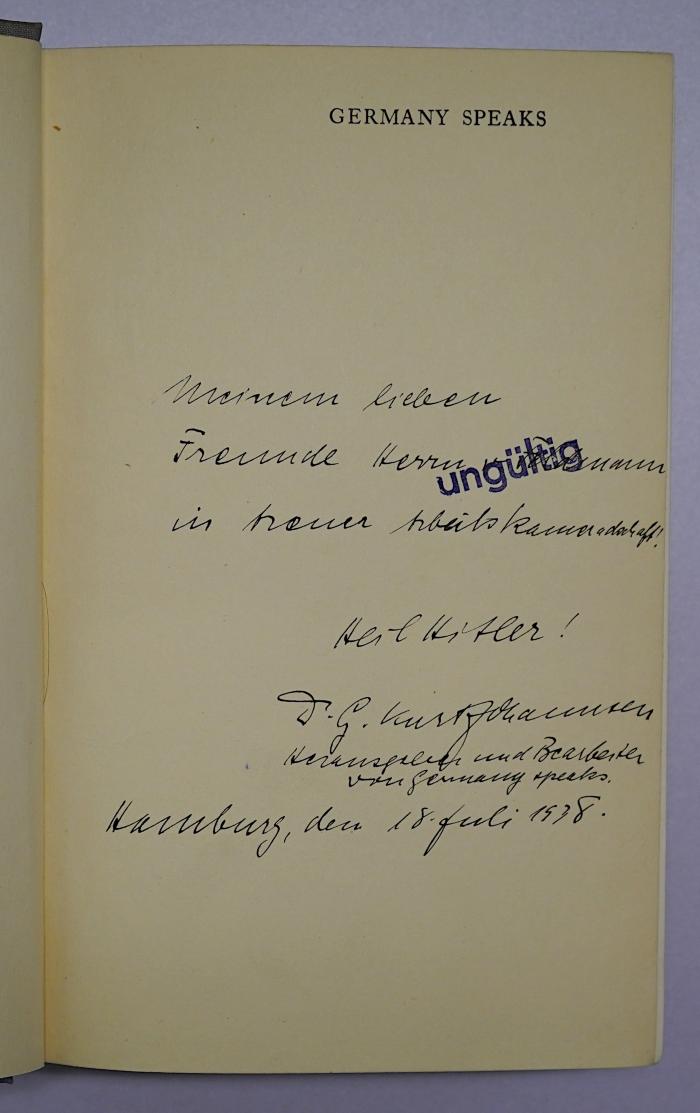 GERMANY SPEAKS
Meinem lieben
Freunde Herrn
ungültig
in treuer Arbeitskameradschaft!
Heil Hitler!
Dr. G. Kurt Johannsen
Herausgeber und Bearbeiter
von Germany speaks.
Hamburg, den 18. Juli 1938.